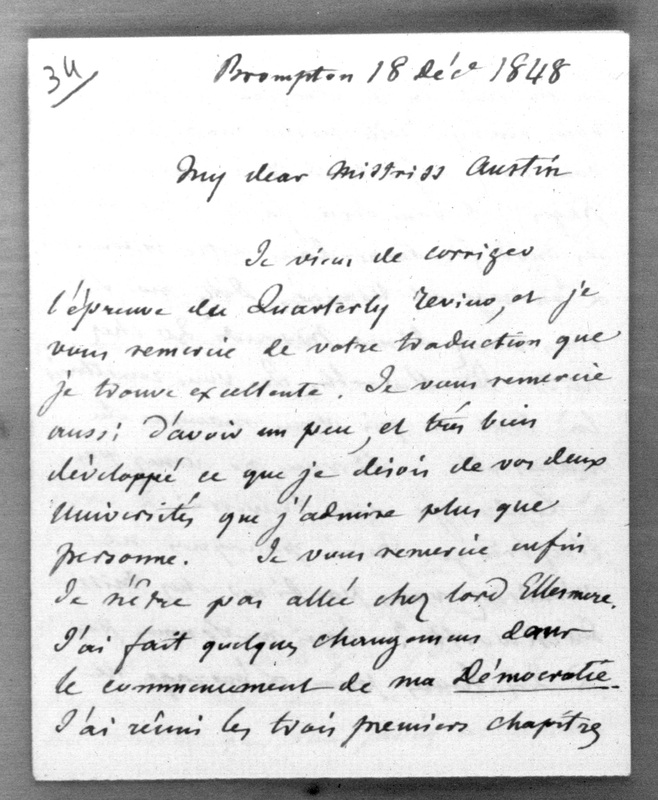 34
Brompton 18 Déce 1848
My dear Mistriss Austin
Je viens de corriger
l'épreuve du Quarterly review, et je
vous remercie de votre traduction que
je trouve excellente. Je vous remercie
aussi d'avoir un peu, et très bien
développé ce que je disois de vos deux
Universités que j'admire plus que
personne. Je vous remercie enfin
de n'être pas allée chez lord Ellesmere.
J'ai fait quelques changemens dans
le commencement de ma Démocratie.
J'ai réuni les trois premiers chapitres